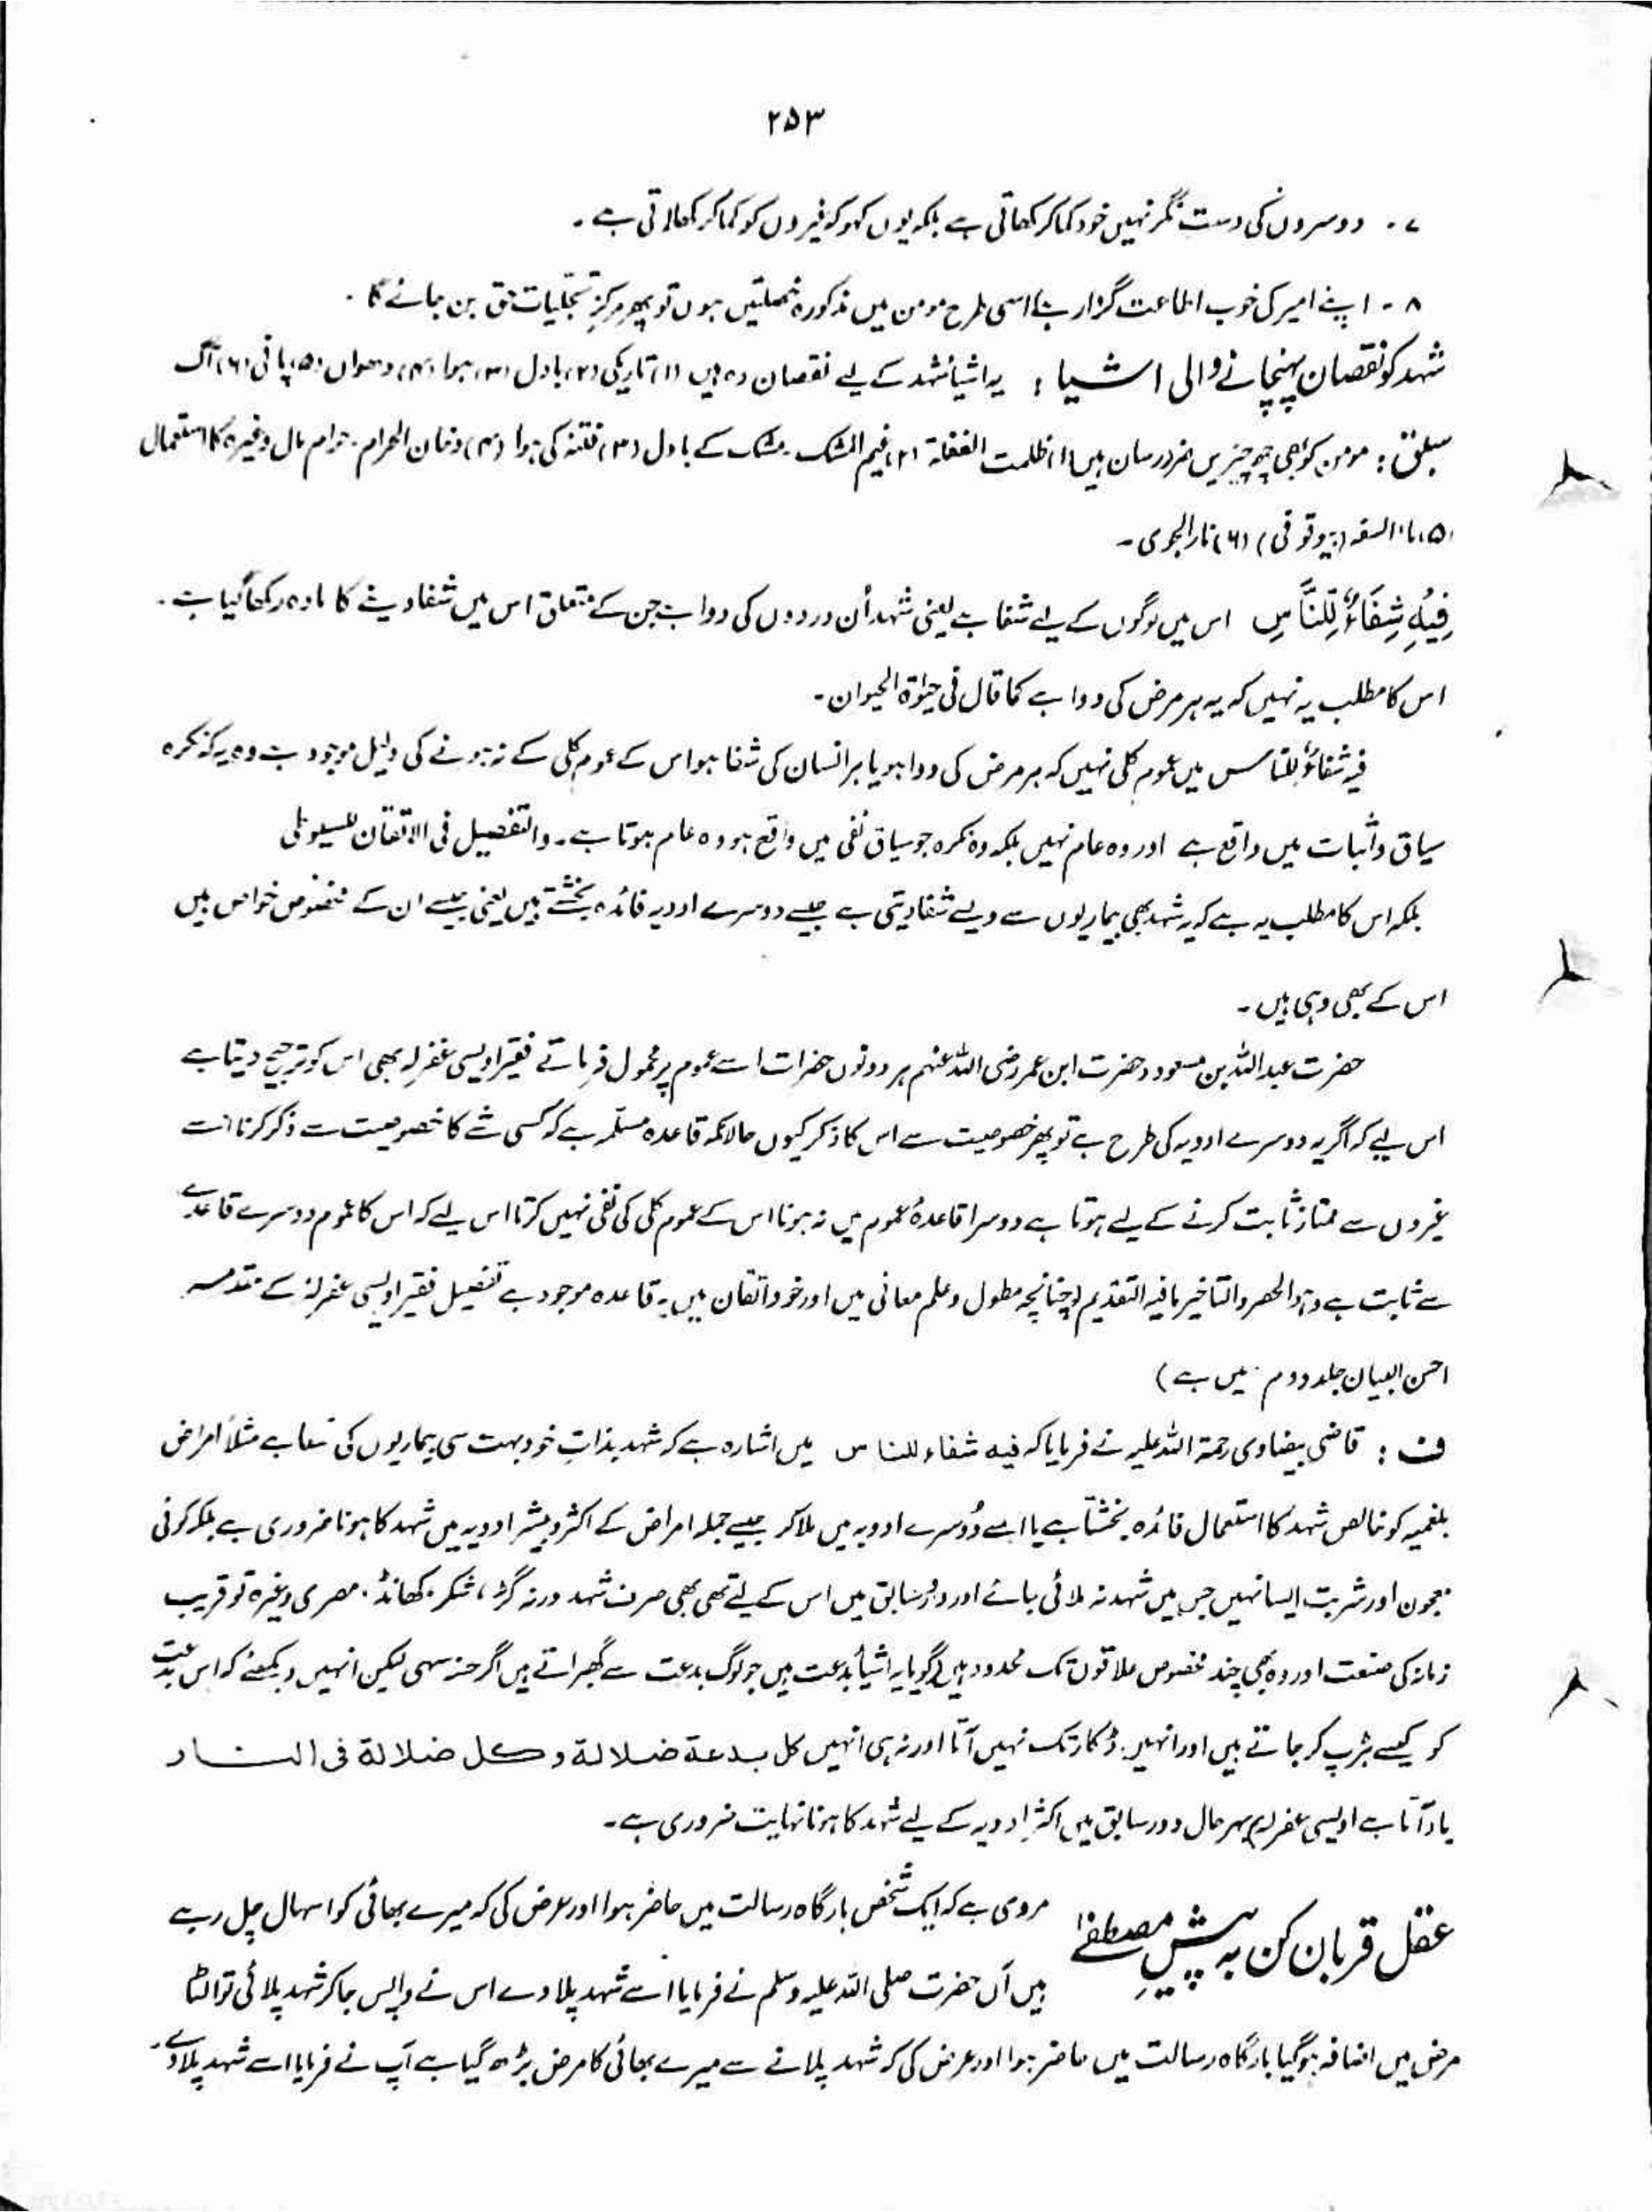 ۲۵۳
۷۔ دوسروں کی دست نگر نہیں خود کما کر کھاتی ہے بلکہ یوں کہو کہ غیروں کو کما کر کھلاتی ہے۔
۸۔ اپنے امیر کی خوب اطاعت گزار ہے اسی طرح مومن میں مذکورہ خصلتیں ہوں تو پھر مرکزِ تجلیات حق بن جائے گا۔
شہد کو نقصان پہنچانے والی اشیا : یہ اشیأ شہد کے لیے نقصان دہ ہیں (۱) تاریکی (۲) بادل (۳) ہوا (۴) دھواں (۵) پانی (۶) آگ
سبق : مومن کو بھی چھ چیزیں ضرر رساں ہیں (۱) ظلمت الغفلۃ (۲) غیم الشک ۔ شک کے بادل (۳) فتنہ کی ہوا (۴) دخان الحرام ۔ حرام مال وغیرہ کا استعمال
(۵) ماء السفہ (بیوقوفی) (۶) نار الہوی ۔
فِیْہِ شِفَآءٌ لِّلنَّاسِ اس میں لوگوں کے لیے شفا ہے یعنی شہد اُن دردوں کی دوا ہے جن کے متعلق اس میں شفا دینے کا مادہ رکھا گیا ہے۔
اس کا مطلب یہ نہیں کہ یہ ہر مرض کی دوا ہے کما قال فی حیٰوۃ الحیوان۔
فیہ شفاءٌ للناس میں عموم کلی نہیں کہ ہر مرض کی دوا ہو یا ہر انسان کی شفا ہو اس کے عموم کلی کے نہ ہونے کی دلیل موجود ہے وہ یہ کہ نکرہ
سیاق واثبات میں واقع ہے اور وہ عام نہیں بلکہ وہ نکرہ جو سیاق نفی میں واقع ہو وہ عام ہوتا ہے۔ والتفصیل فی الاتقان للسیوطی
بلکہ اس کا مطلب یہ ہے کہ یہ شہد بھی بیماریوں سے ویسے شفا دیتی ہے جیسے دوسرے ادویہ فائدہ بخشتے ہیں یعنی جیسے ان کے مخصوص خواص ہیں
اس کے بھی وہی ہیں ۔
حضرت عبداللہ بن مسعود و حضرت ابن عمر رضی اللہ عنہم ہر دونوں حضرات اسے عموم پر محمول فرماتے فقیر اویسی غفرلہ بھی اس کو ترجیح دیتا ہے
اس لیے کہ اگر یہ دوسرے ادویہ کی طرح ہے تو پھر خصوصیت سے اس کا ذکر کیوں حالانکہ قاعدہ مسلّمہ ہے کہ کسی شے کا خصوصیت سے ذکر کرنا اسے
غیروں سے ممتاز ثابت کرنے کے لیے ہوتا ہے دوسرا قاعدۂ عموم میں نہ ہونا اس کے عموم کلی کی نفی نہیں کرتا اس لیے کہ اس کا عموم دوسرے قاعدے
سے ثابت ہے و ہوالحصر والتاخیر مافیہ التقدیم (چنانچہ مطول و علم معانی میں اور خود اتقان میں یہ قاعدہ موجود ہے تفصیل فقیر اویسی غفرلہٗ کے مقدمہ
احسن البیان جلد دوم میں ہے)
ف : قاضی بیضاوی رحمۃ اللہ علیہ نے فرمایا کہ فیہ شفاء للناس میں اشارہ ہے کہ شہد بذاتِ خود بہت سی بیماریوں کی شفا ہے مثلاً امراض
بلغمیہ کو خالص شہد کا استعمال فائدہ بخشتا ہے یا اسے دُوسرے ادویہ میں ملا کر جیسے جملہ امراض کے اکثر و بیشتر ادویہ میں شہد کا ہونا ضروری ہے بلکہ کوئی
معجون اور شربت ایسا نہیں جس میں شہد نہ ملائی جائے اور دورِ سابق میں اس کے لیے تھی بھی صرف شہد ورنہ گڑ ، شکر ۔ کھانڈ ۔ مصری وغیرہ تو قریب
زمانہ کی صنعت اور وہ بھی چند مخصوص علاقوں تک محدود ہیں (گویا یہ اشیأ بدعت ہیں جو لوگ بدعت سے گھبراتے ہیں اگرچہ حسنہ سہی لیکن انہیں دیکھئے کہ اس بدعت
کو کیسے ہڑپ کر جاتے ہیں اور انہیں ڈکار تک نہیں آتا اور نہ ہی انہیں کل بدعۃ ضلالۃ وکل ضلالۃ فی النار
یاد آتا ہے اویسی غفرلہ) بہرحال دورِ سابق میں اکثر ادویہ کے لیے شہد کا ہونا نہایت ضروری ہے۔
عقل قربان کن بہ پیشِ مصطفےٰ مروی ہے کہ ایک شخص بارگاہ رسالت میں حاضر ہوا اور عرض کی کہ میرے بھائی کو اسہال چل رہے
ہیں آں حضرت صلی اللہ علیہ وسلم نے فرمایا اسے شہد پلا دے اس نے واپس جا کر شہد پلائی تو الٹا
مرض میں اضافہ ہو گیا بارگاہ رسالت میں حاضر ہوا اور عرض کی کہ شہد پلانے سے میرے بھائی کا مرض بڑھ گیا ہے آپ نے فرمایا اسے شہد پلا دے۔